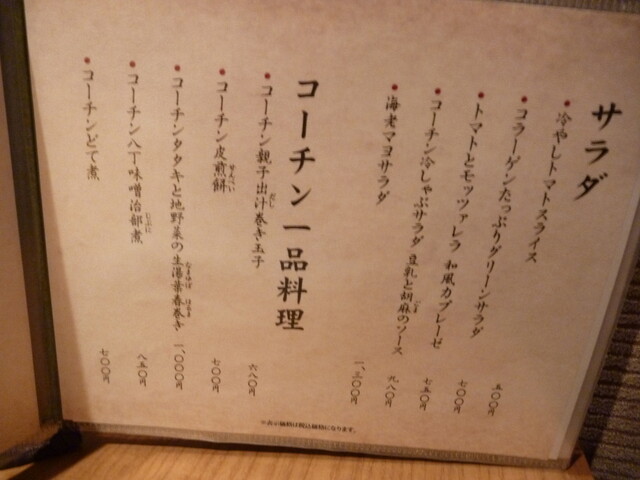 サラダ
冷やしトマトスライス 五〇〇円
コラーゲンたっぷりグリーンサラダ 七〇〇円
トマトとモッツァレラ 和風カプレーゼ 七五〇円
コーチン冷しゃぶサラダ 豆乳と胡麻のソース 九八〇円
海老マヨサラダ 一、二〇〇円
コーチン一品料理
コーチン親子出汁巻き玉子 六八〇円
コーチン皮煎餅 七〇〇円
コーチンタタキと地野菜の生湯葉春巻き 一、〇〇〇円
コーチン八丁味噌治部煮 八五〇円
コーチンどて煮 七〇〇円
※表示価格は税込価格になります。